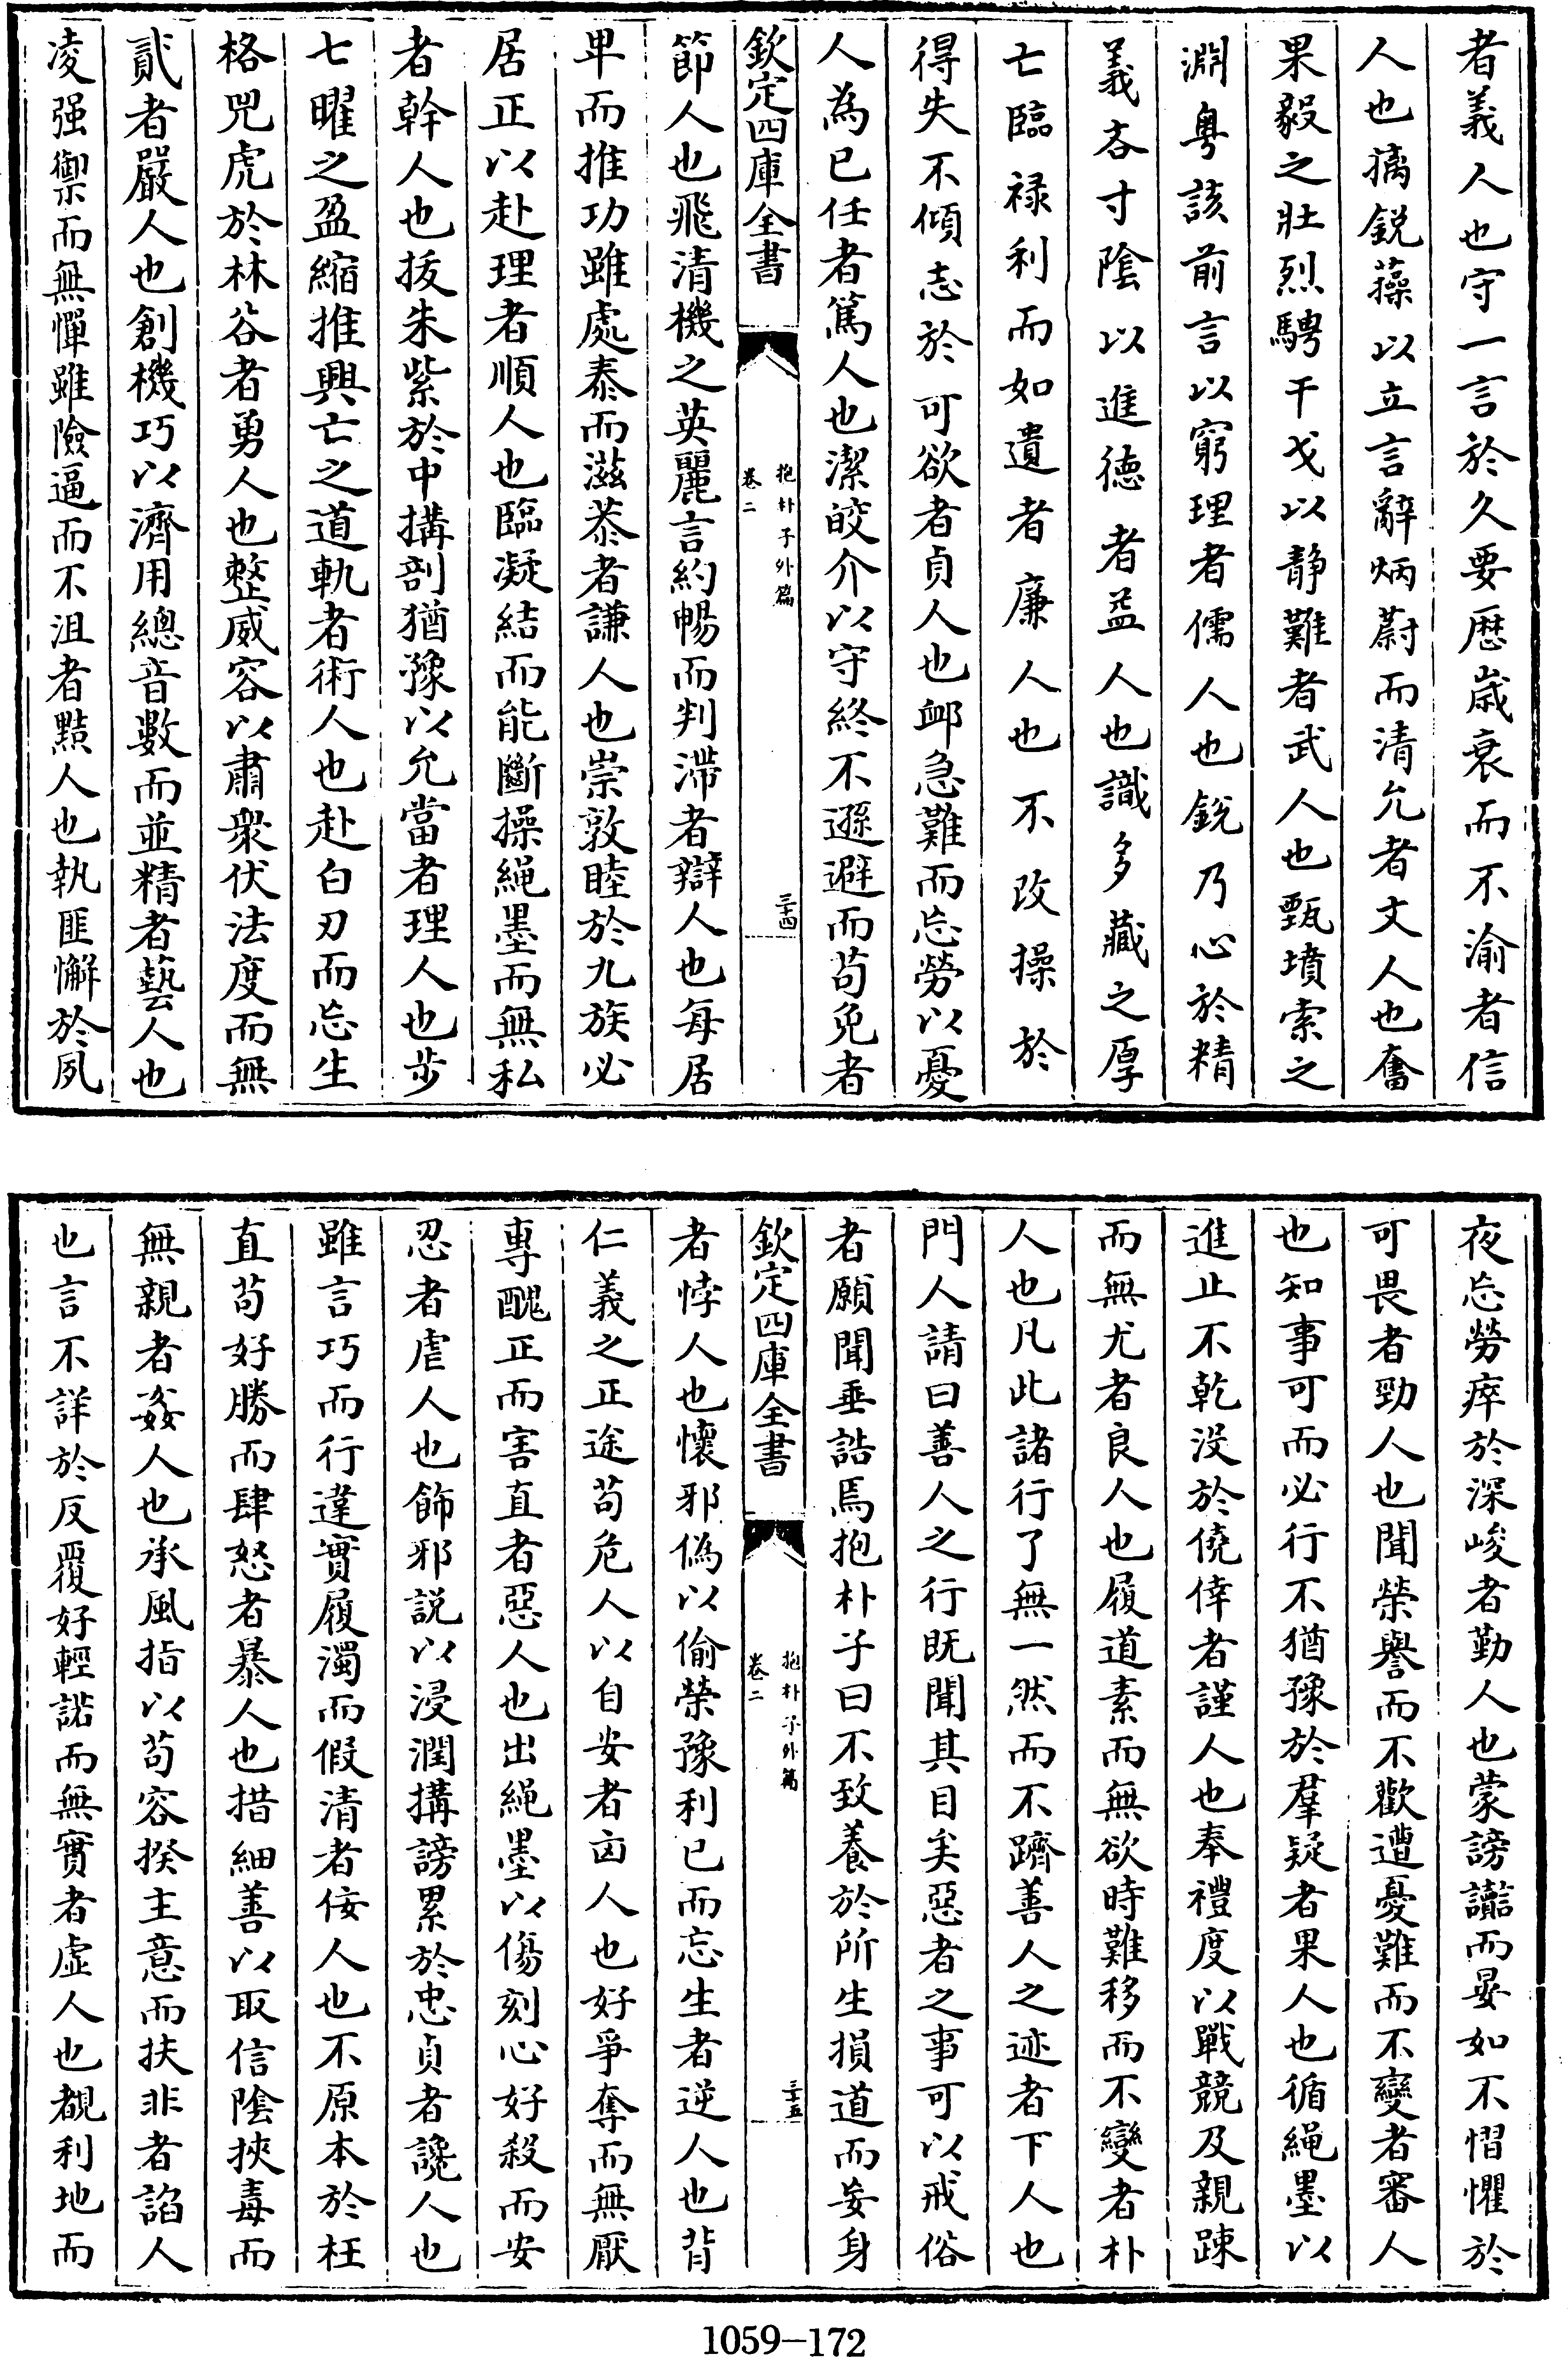 者義人也守一言於久要歴歳衰而不渝者信
人也摛鋭藻以立言辭炳蔚而清允者文人也奮
果毅之壯烈騁干戈以静難者武人也甄墳索之
淵奥該前言以窮理者儒人也鋭乃心於精
義吝寸陰以進徳者益人也識多藏之厚
亡臨禄利而如遺者廉人也不改操於
得失不傾志於可欲者貞人也邺急難而忘勞以憂
人為已任者篤人也潔皎介以守終不遜避而苟免者
欽定四庫全書
抱朴子外篇
卷二
三十四
節人也飛清機之英麗言約暢而判滯者辯人也毎居
卑而推功雖處泰而滋恭者謙人也崇敦睦於九族必
居正以赴理者順人也臨凝結而能斷操繩墨而無私
者幹人也拔朱紫於中搆剖猶豫以允當者理人也步
七曜之盈縮推興亡之道軌者術人也赴白刃而忘生
格兕虎於林谷者勇人也整威容以肅衆伏法度而無
貳者嚴人也創機巧以濟用總音數而並精者藝人也
凌强禦而無憚雖險逼而不沮者黠人也執匪懈於夙
夜忘勞瘁於深峻者勤人也蒙謗讟而晏如不慴懼於
可畏者勁人也聞榮譽而不歡遭憂難而不變者審人
也知事可而必行不猶豫於羣疑者果人也循繩墨以
進止不乾没於僥倖者謹人也奉禮度以戰競及親踈
而無尤者良人也履道素而無欲時難移而不變者朴
人也凡此諸行了無一然而不躋善人之迹者下人也
門人請曰善人之行既聞其目矣惡者之事可以戒俗
者願聞垂誥焉抱朴子曰不致養於所生損道而妄身
欽定四庫全書
抱朴子外篇
卷二
三十五
者悖人也懷邪偽以偷榮豫利已而忘生者逆人也背
仁義之正途苟危人以自安者凶人也好爭奪而無厭
專醜正而害直者惡人也出繩墨以傷刻心好殺而安
忍者虐人也飾邪説以浸潤搆謗累於忠貞者讒人也
雖言巧而行違實履濁而假清者佞人也不原本於枉
直苟好勝而肆怒者暴人也措細善以取信隂挾毒而
無親者姦人也承風指以苟容揆主意而扶非者諂人
也言不詳於反覆好輕諾而無實者虚人也覩利地而
1059-172